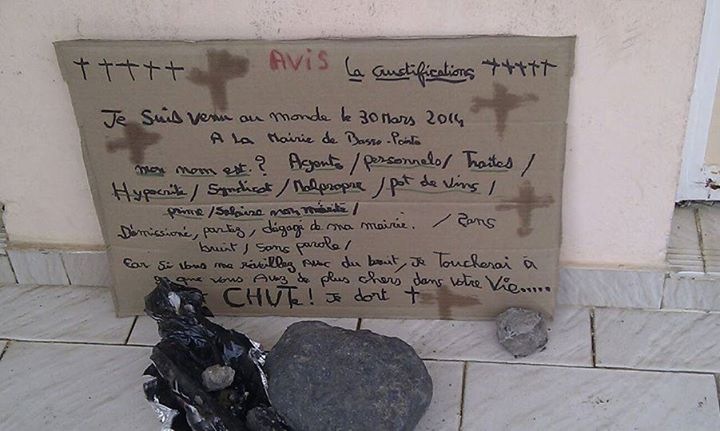 ††††† AVIS La Crustifications †††††
Je suis venu au monde le 30 Mars 2014
A La Mairie de Basse-Pointe
mon nom est.? Agents/personnels/Traites/
Hypocrite/Syndicat/Malpropre/pot de vins/
prime/Salaire non mérité/
Démissioné, partez, dégagé de ma mairie. / Sans
bruit/sans parole/
Car si vous me réveillez avec du bruit, Je Toucherai à
ce que vous Avez de plus chers dans votre Vie.....
CHUTe! Je dort †